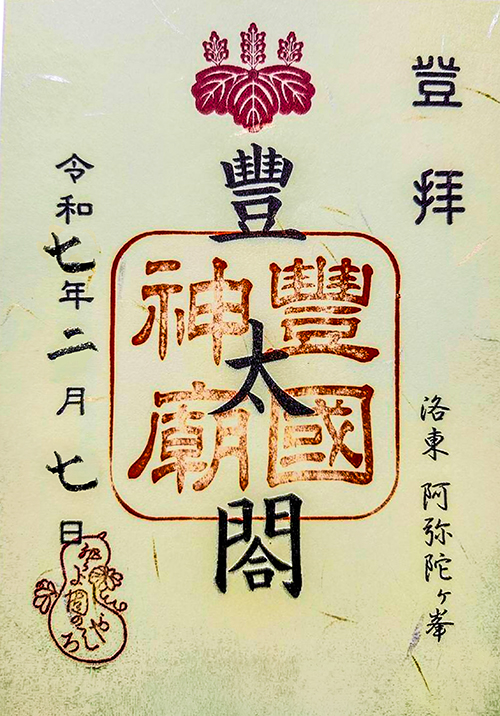 登拝
洛東 阿弥陀ヶ峯
豐太閤
豐國
神廟
令和七年二月七日